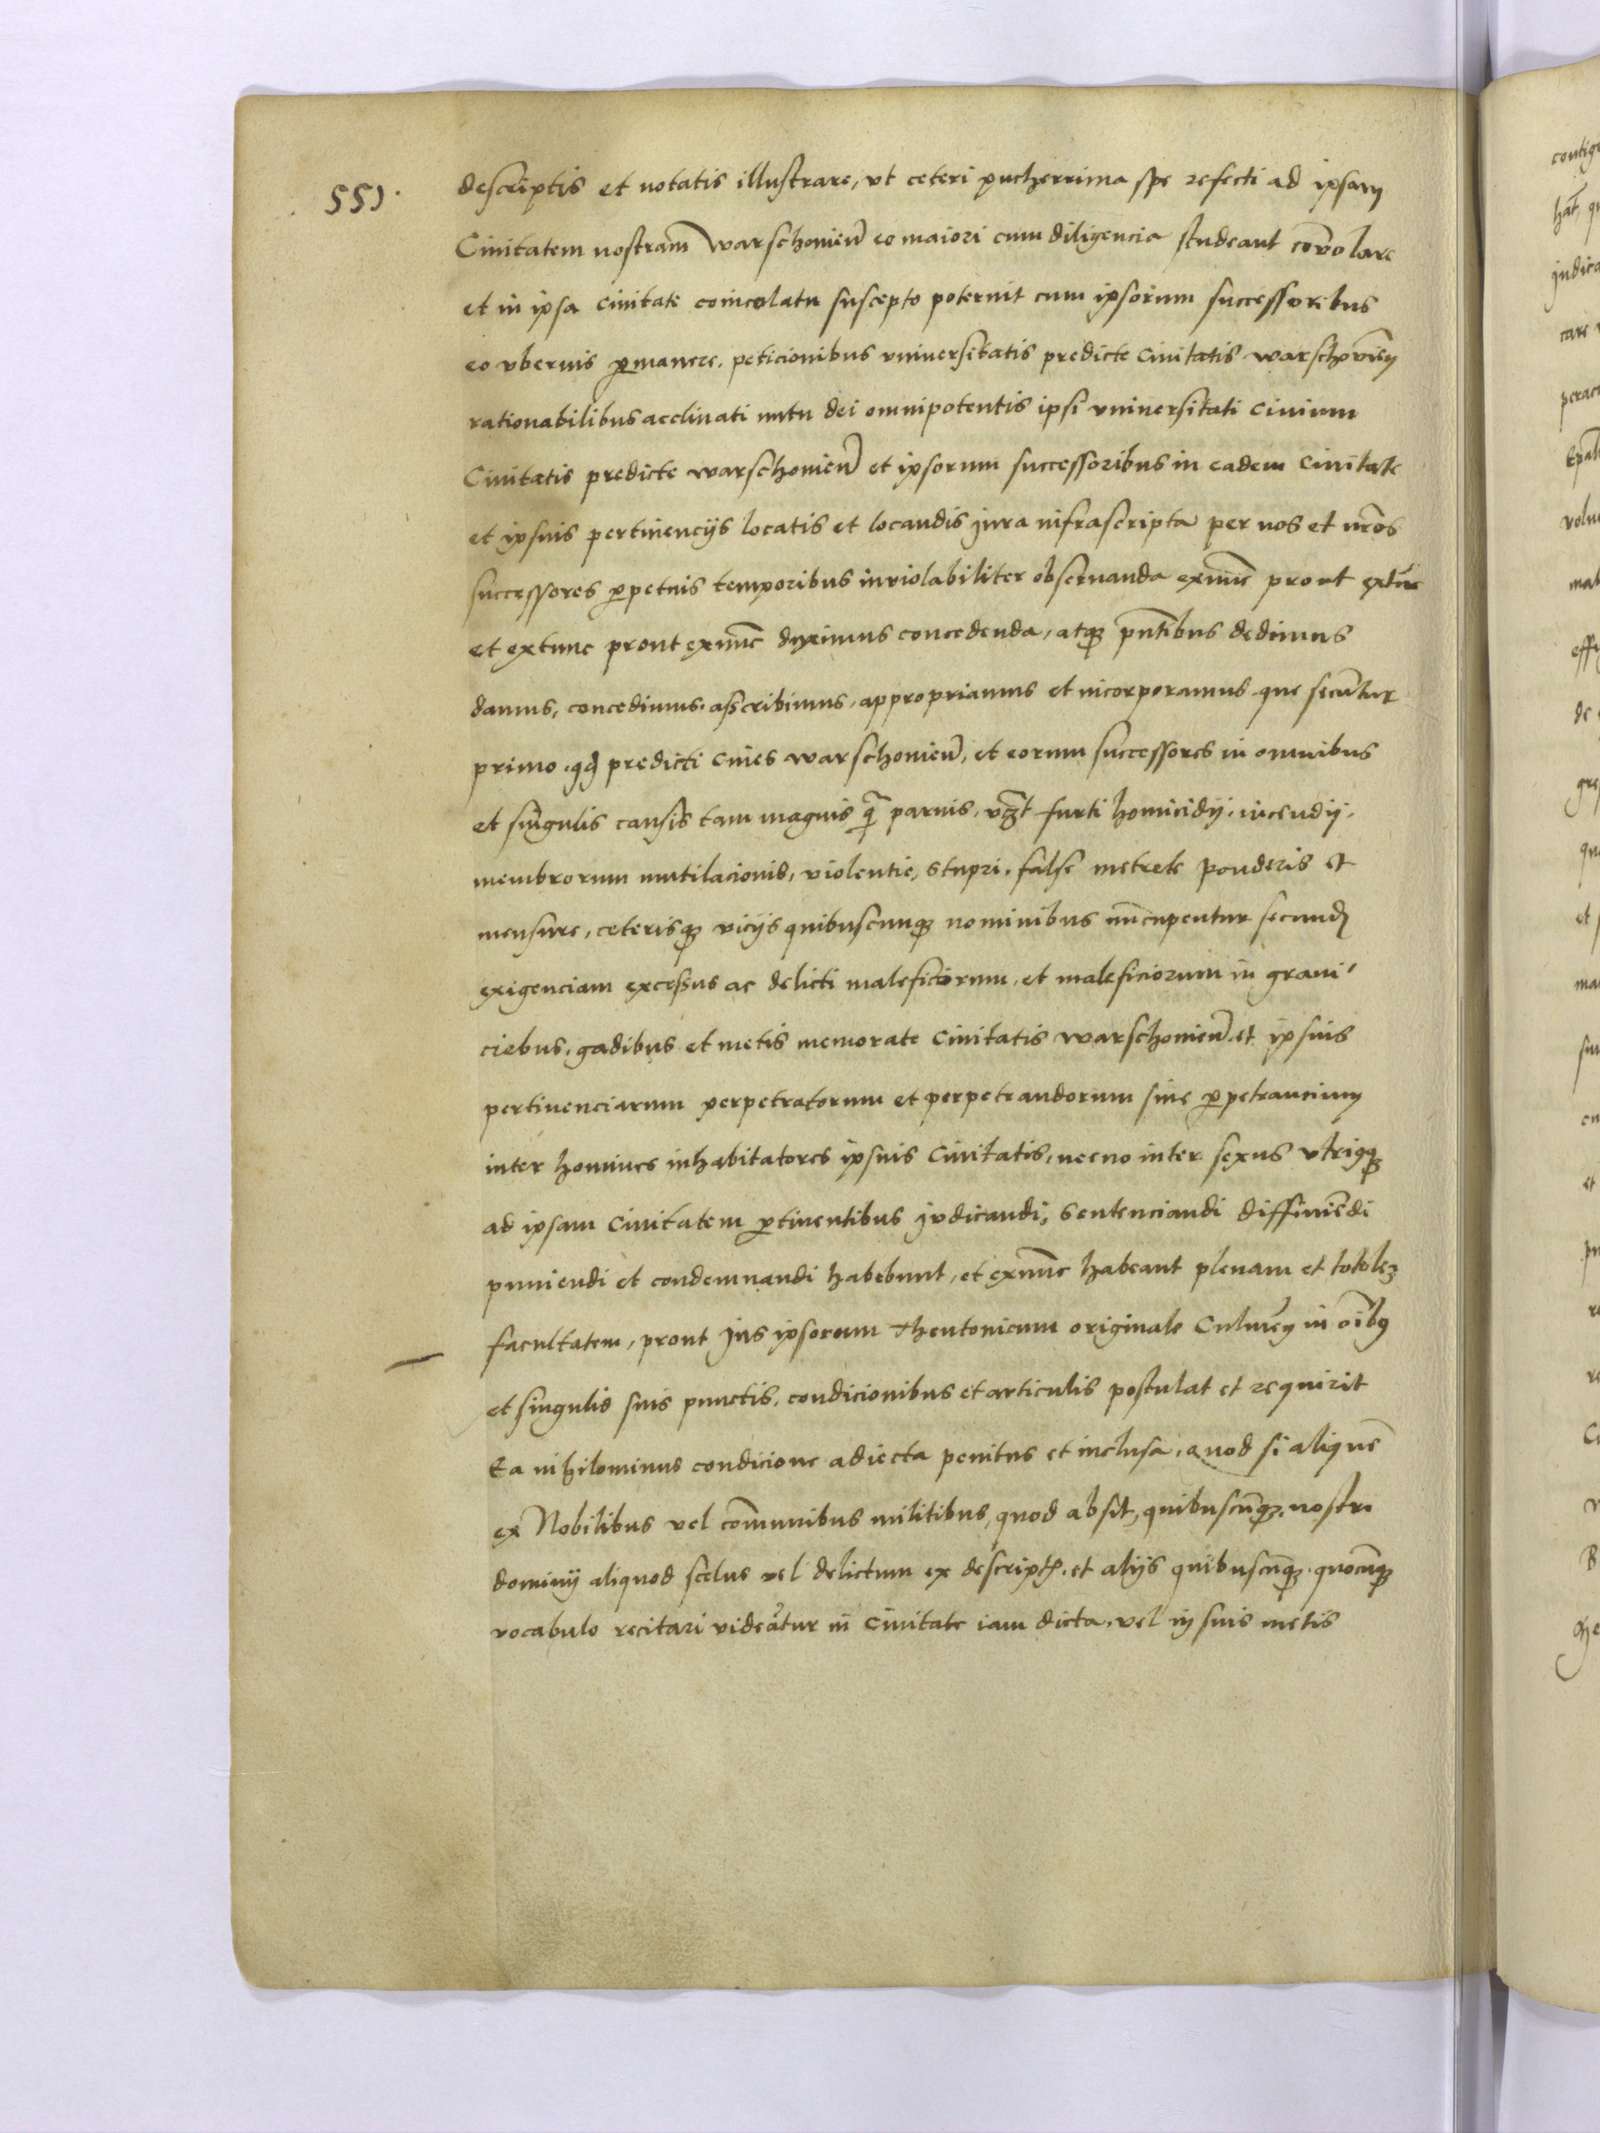 551.
descriptis et notatis illustrare, vt ceteri pucherrima spe refecti ad ipsam
Ciuitatem nostram̄ warschouien̄ eo maiori cum diligencia studeant cōuolare
et in ipsa ciuitate coincolatu suscepto poterint cum ipsorum successoribus
eo vberius ꝑmanere. peticionibus vniuersitatis predicte ciuitatis warschouien̄
rationabilibus acclinati nutu dei omnipotentis ipsi vniuersitati ciuium
Ciuitatis predicte warschouien̄ et ipsorum successoribus in eadem ciuitate
et ipsius pertinencijs locatis et locandis jura infrascripta per nos et nr̄os
successores ꝑpetuis temporibus inviolabiliter obseruanda exnūc prout extūc
et extunc prout exnūc duximus concedenda, atqꝫ pn̄tibus dedimus
damus, concedimus. asscribimus, appropriamus et incorporamus. que secūtur
primo. qđ predicti ciues warschouien̄, et eorum successores in omnibus
et singulis causis tam magnis q̄ paruis, vꝫt furti homicidij. incendij.
membrorum mutilacionis, violentie, stupri. false metrete ponderis et
mensure, ceterisqꝫ vicijs quibuscunqꝫ nominibus nūcupentur secund
exigenciam excessus ac delicti malefictorum, et maleficiorum in graui
ciebus, gadibus et metis memorate ciuitatis warschouien̄ et ipsius
pertinenciarum perpetratorum et perpetrandorum siue ꝑpetrancium
inter homines inhabitatores ipsius Ciuitatis, necno inter sexus vtriqqꝫ
ad ipsam ciuitatem ꝑtinentibus judicandi, sentenciandi diffiniēdi
puniendi et condemnandi habebunt, et exnūc habeant plenam et totaleꝫ
facultatem, prout jus ipsorum theutonicum originale Culmen̄ in oīb9
et singulis suis punctis, condicionibus et articulis postulat et requirit
Ea nihilominus condicione adiecta penitus et inclusa, quod si aliquē
ex Nobilibus vel cōmunibus militibus, quod absit, quibuscūqꝫ. nostri
dominij aliquod scelus vel delictum ex descript. et alijs quibuscūqꝫ. quocūqꝫ
vocabulo recitari videātur in ciuitate iam dicta, vel in suis metis